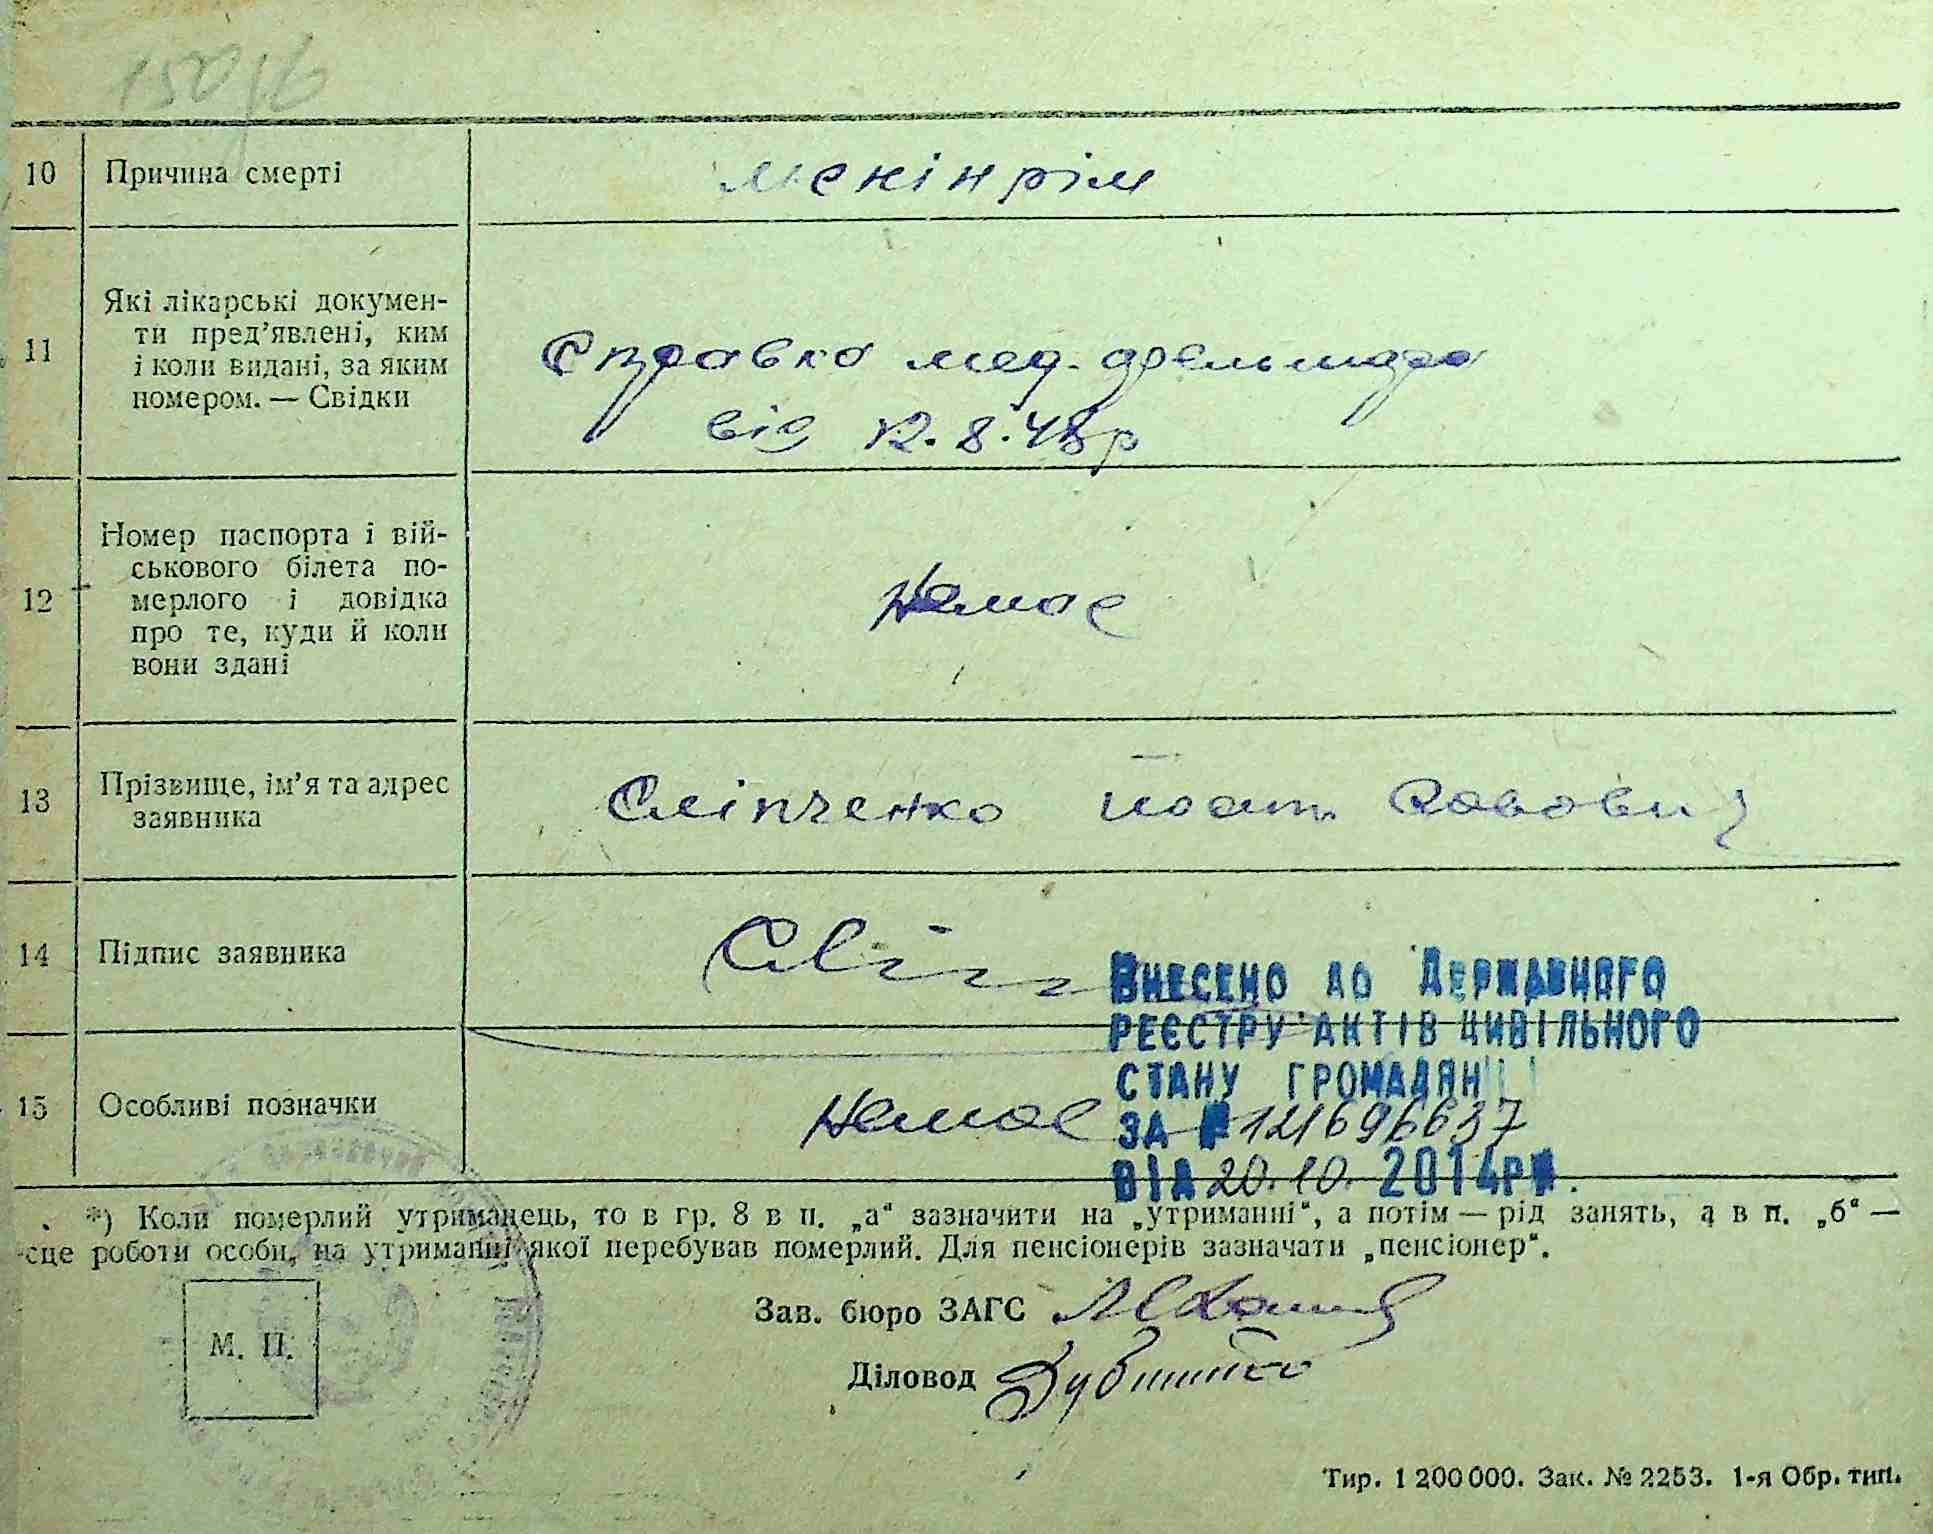 10 Причина смерті менінрім
11 Які лікарські докумен-
ти пред'явлені, ким
і коли видані, за яким
номером. — Свідки
Справка мед. фельшера
від 12.8.48р
12 Номер паспорта і вій-
ськового білета по-
мерлого і довідка
про те, куди й коли
вони здані
Немає
13 Прізвище, ім'я та адрес
заявника
Сліпченко Савович
14 Підпис заявника
15 Особливі позначки Немає
Внесено до Державного
реєстру актів цивільного
стану громадян
за № 121696637
від 20.10.2014р.
*) Коли померлий утриманець, то в гр. 8 в п. „а“ зазначити на „утриманні“, а потім — рід занять, а в п. „б“ —
сце роботи особи, на утриманні якої перебував померлий. Для пенсіонерів зазначати „пенсіонер“.
М. П.
Зав. бюро ЗАГС
Діловод
Тир. 1 200 000. Зак. № 2253. 1-я Обр. тип.